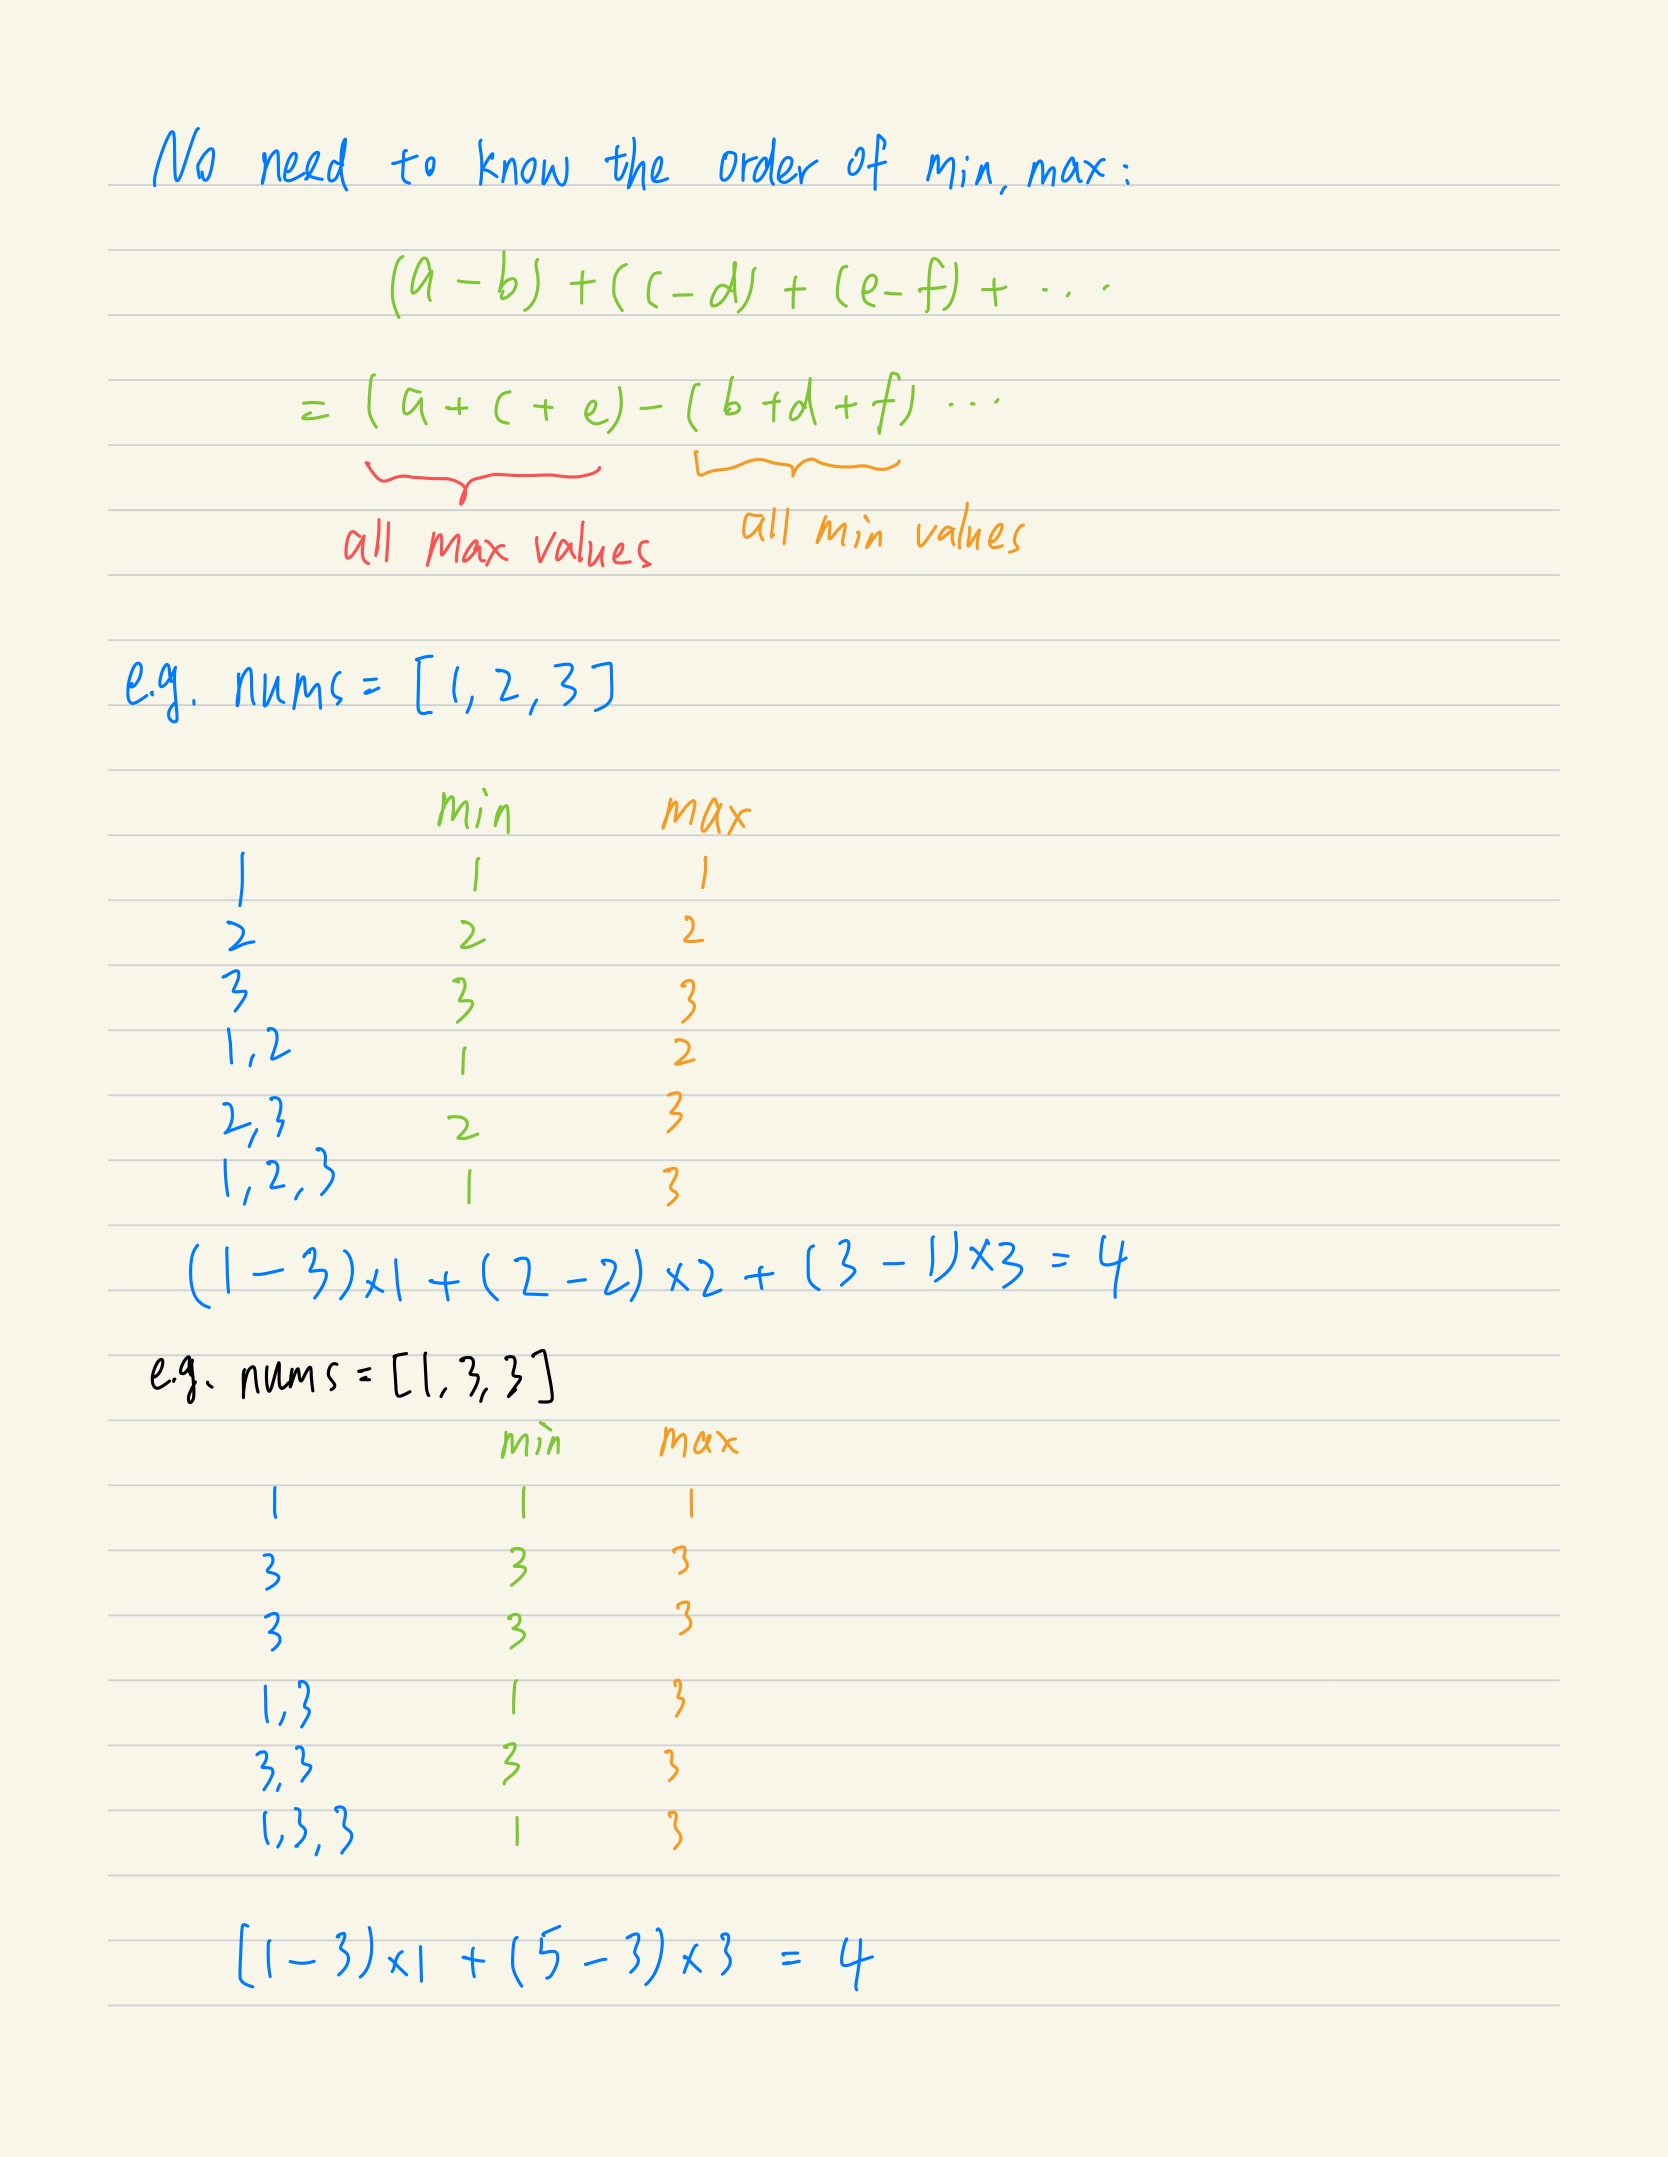 No need to know the order of min, max:
(a - b) + (c - d) + (e - f) + ...
= (a + c + e) - (b + d + f) ...
all max values all min values
e.g. nums = [1, 2, 3]
min max
1 1 1
2 2 2
3 3 3
1,2 1 2
2,3 2 3
1,2,3 1 3
(1 - 3) × 1 + (2 - 2) × 2 + (3 - 1) × 3 = 4
e.g. nums = [1, 3, 3]
min max
1 1 1
3 3 3
3 3 3
1,3 1 3
3,3 3 3
1,3,3 1 3
[1 - 3) × 1 + (5 - 3) × 3 = 4